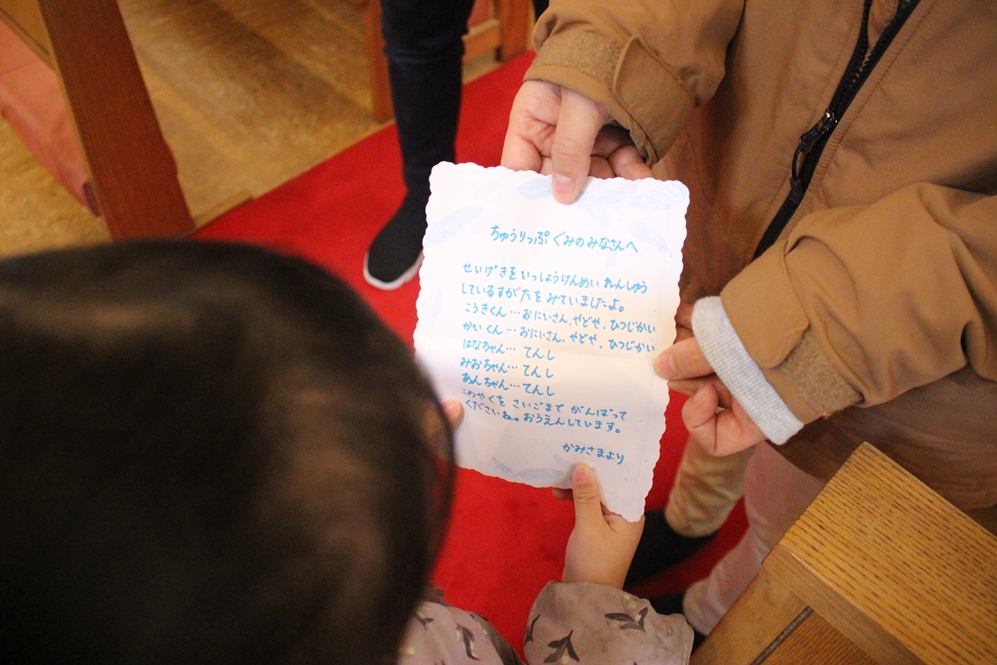 ちゅうりっぷ ぐみの みなさんへ
せいげきを いっしょうけんめい れんしゅう
しているすがたを みていましたよ。
こうきくん…おにいさん、やどや、ひつじかい
かいくん…おにいさん、やどや、ひつじかい
はなちゃん…てんし
みおちゃん…てんし
あんちゃん…てんし
このやくを さいごまで がんばって
くださいね。おうえんしています。
かみさまより